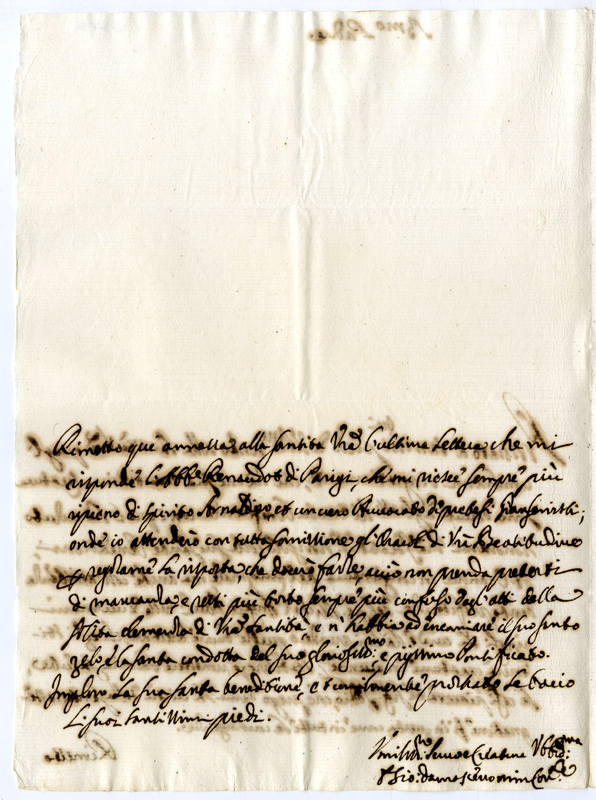 Rimetto quì annessa alla Santità Vrã l'ultima lettera che mi
risponde l'Abbe Renaudot di Parigi, che mi riesce sempre più
ripieno di spirito Arnaldino, et un vero Avvocato de pretesi Giansenisti;
onde io attenderò con tutta somissione gl'Oracoli di Vrã Beatitudine
regolarne la risposta, che dovrò farle, acciò non prenda pretesti
di mancanza, e resti più tosto sempre più confuso dagl'atti della
solita clemenza di Vrã Santità, e n'habbia ad encomiare il suo santo
zelo e la santa condotta del suo e Pontificato.
Imploro la sua santa benedizione, et umilmente prostrato le bacio
li suoi santissimi piedi.
Umil.mo Servo e Creatura Obb.ma
F Gio: Damasceno Min Con.